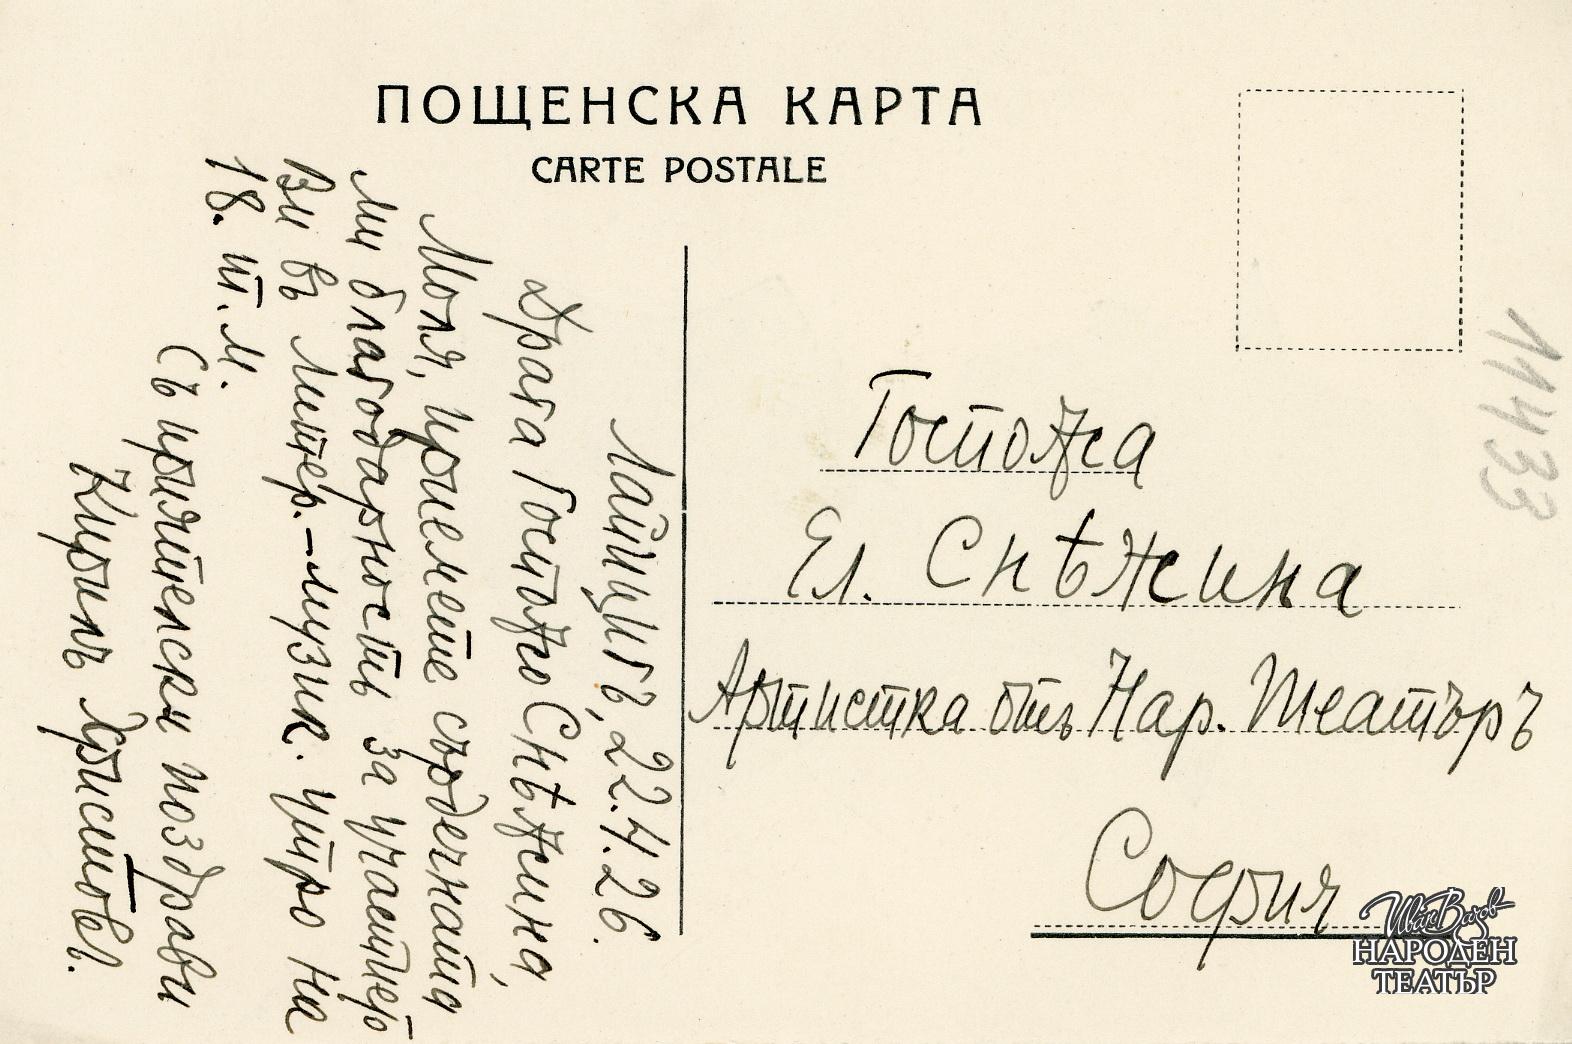 ПОЩЕНСКА КАРТА
CARTE POSTALE
Лайпцигъ, 22.4.26.
Драга Госпожо Снѣжина,
Моля, приемете сърдечната
ми благодарность за участието
Ви въ литер.-музик. утро на
18. т. м.
Съ приятелски поздрави
Кирилъ Христовъ.
Госпожа
Ел. Снѣжина
Артистка отъ Нар. Театъръ
София
11433
Иван Вазов
НАРОДЕН
ТЕАТЪР